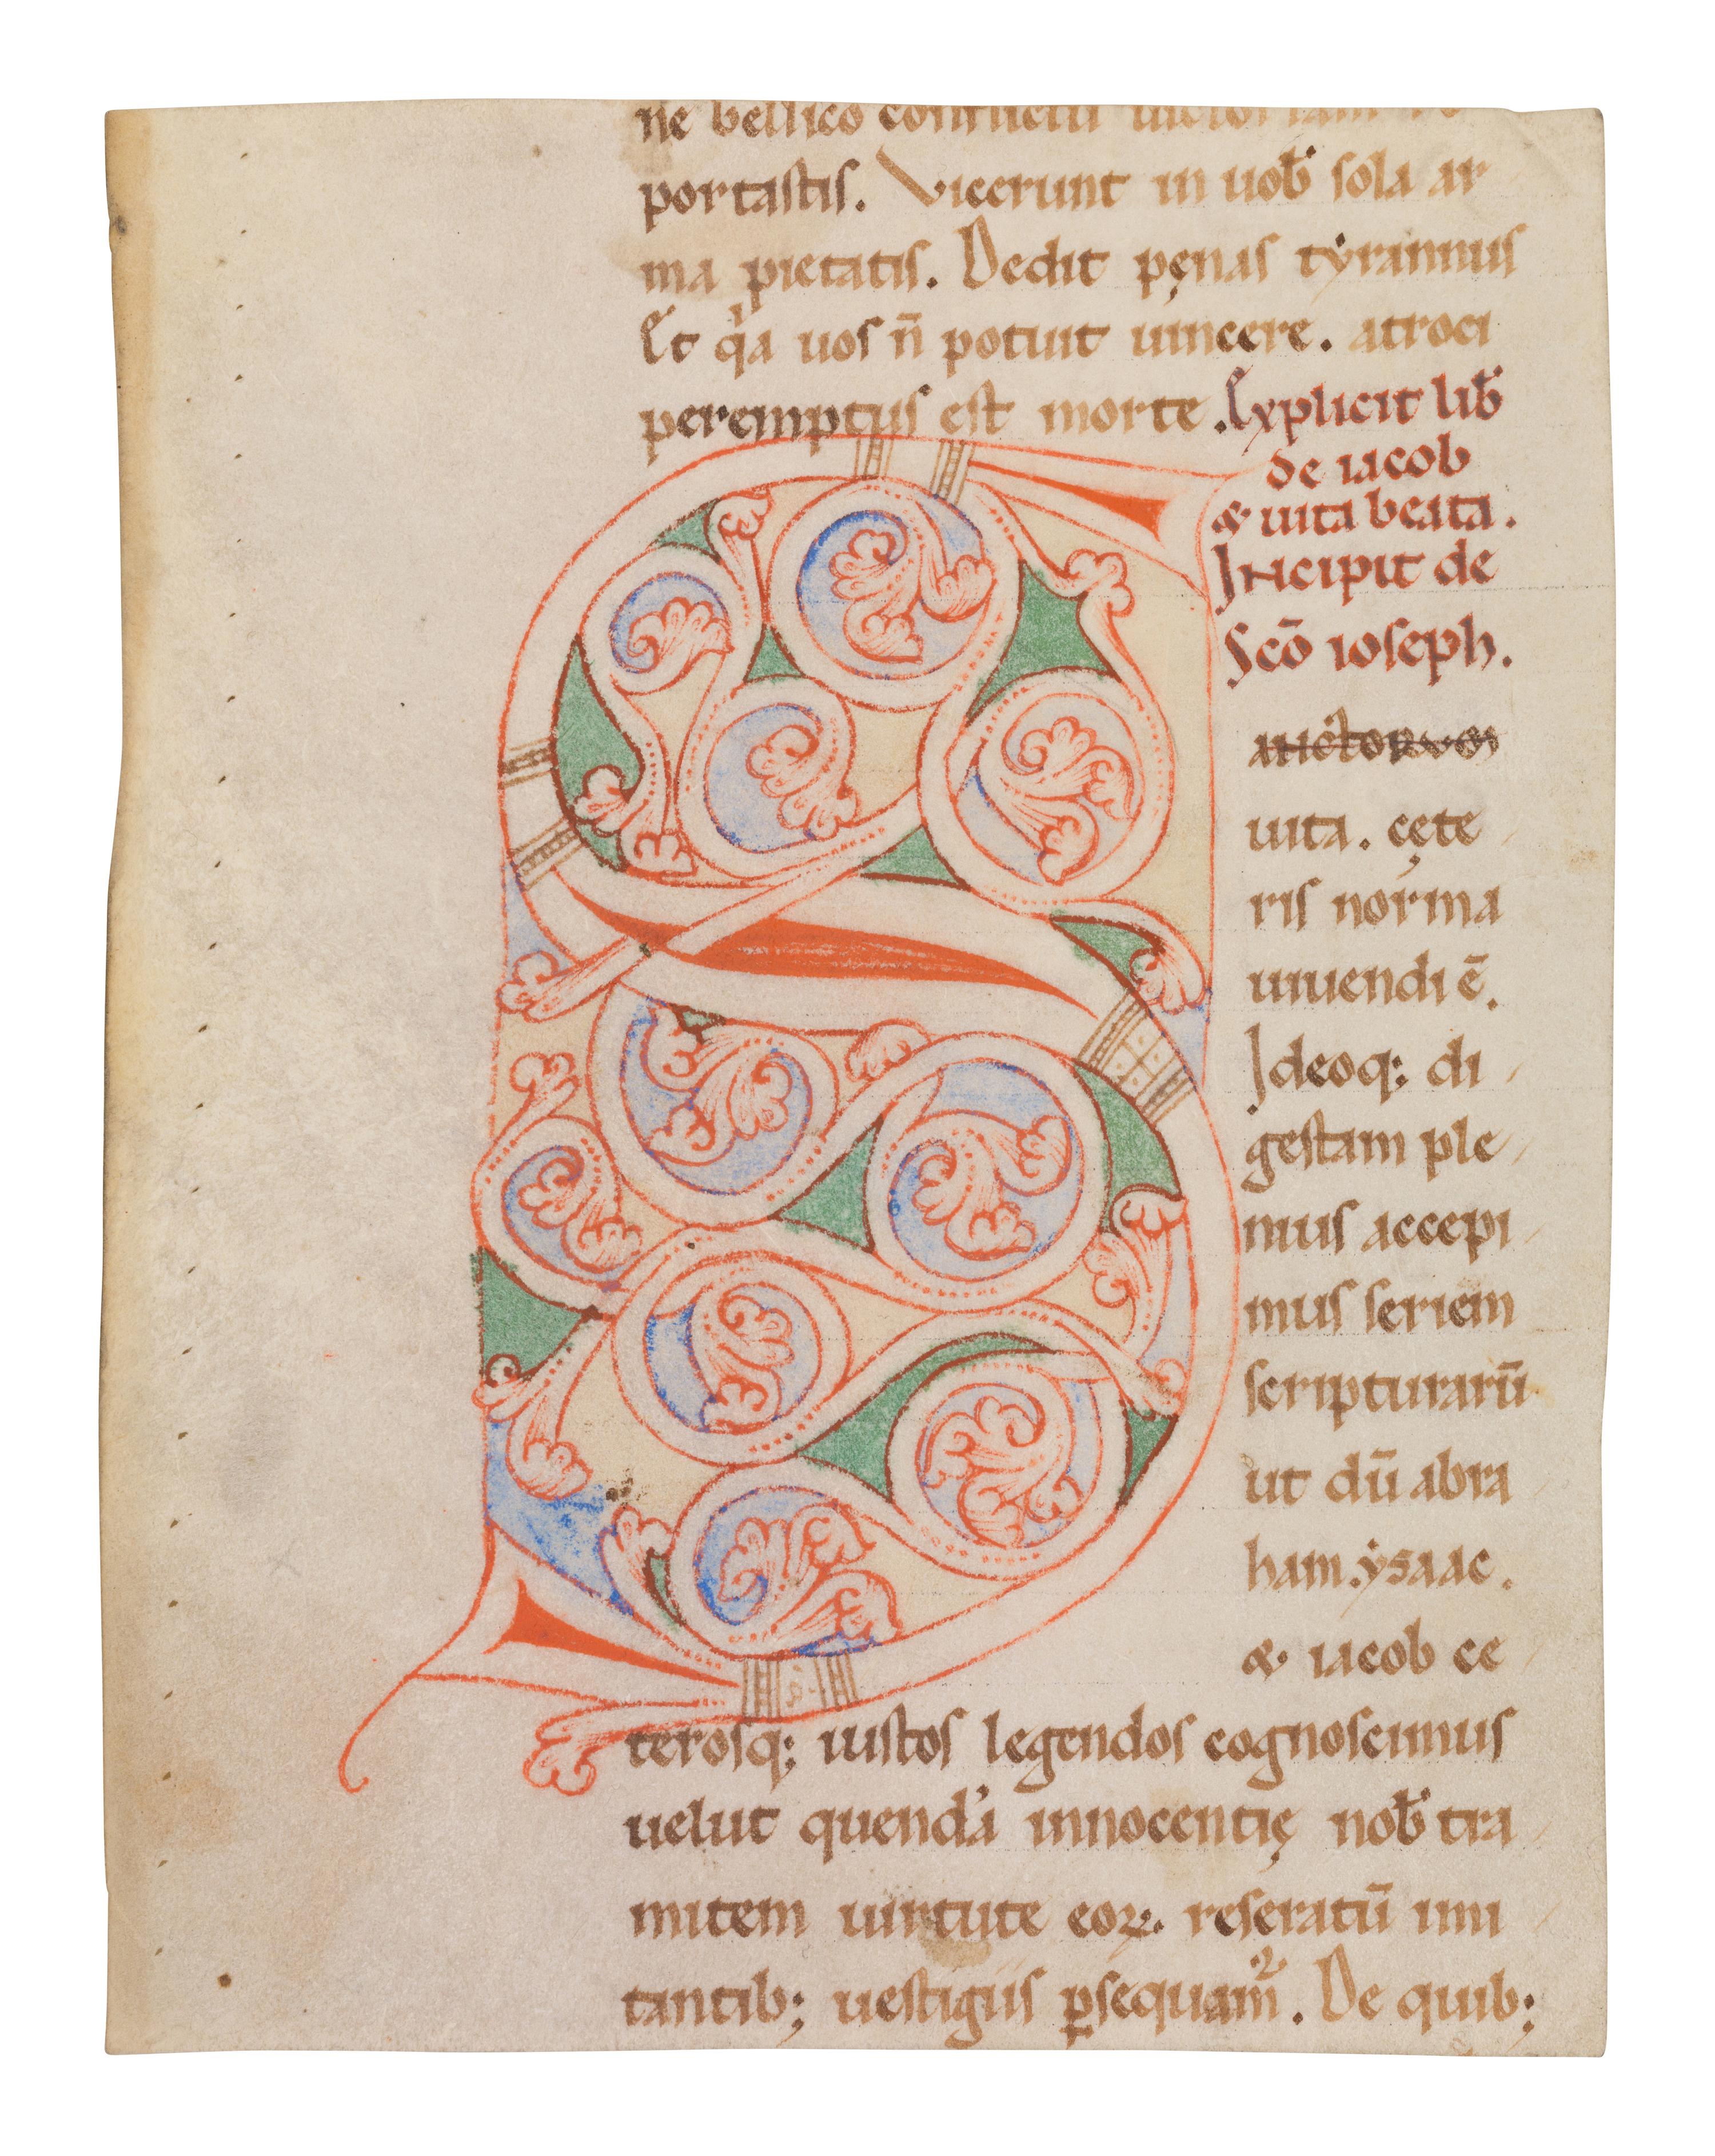 ne bellico conflictu
portastis. Vicerunt in uob̄ sola ar
ma pietatis. Dedit pęnas tẏrannus
Et qͥa uos n̄ potuit uincere. atroci
peremptus est morte. Explicit lib̄
de iacob
& uita beata.
Incipit de
Sc̄o ioseph.
S
uita. cęte
ris norma
uiuendi ē.
Ideoq; di
gestam ple
mus accepi
mus seriem
scripturarū
ut dū abra
ham. ẏsaac.
& iacob ce
terosq; iustos legendos cognoscimus
uelut quendā innocentię nob̄ tra
mitem uirtute eoꝝ. reseratū imi
tantib; uestigiis ꝑsequam᷑. De quib;